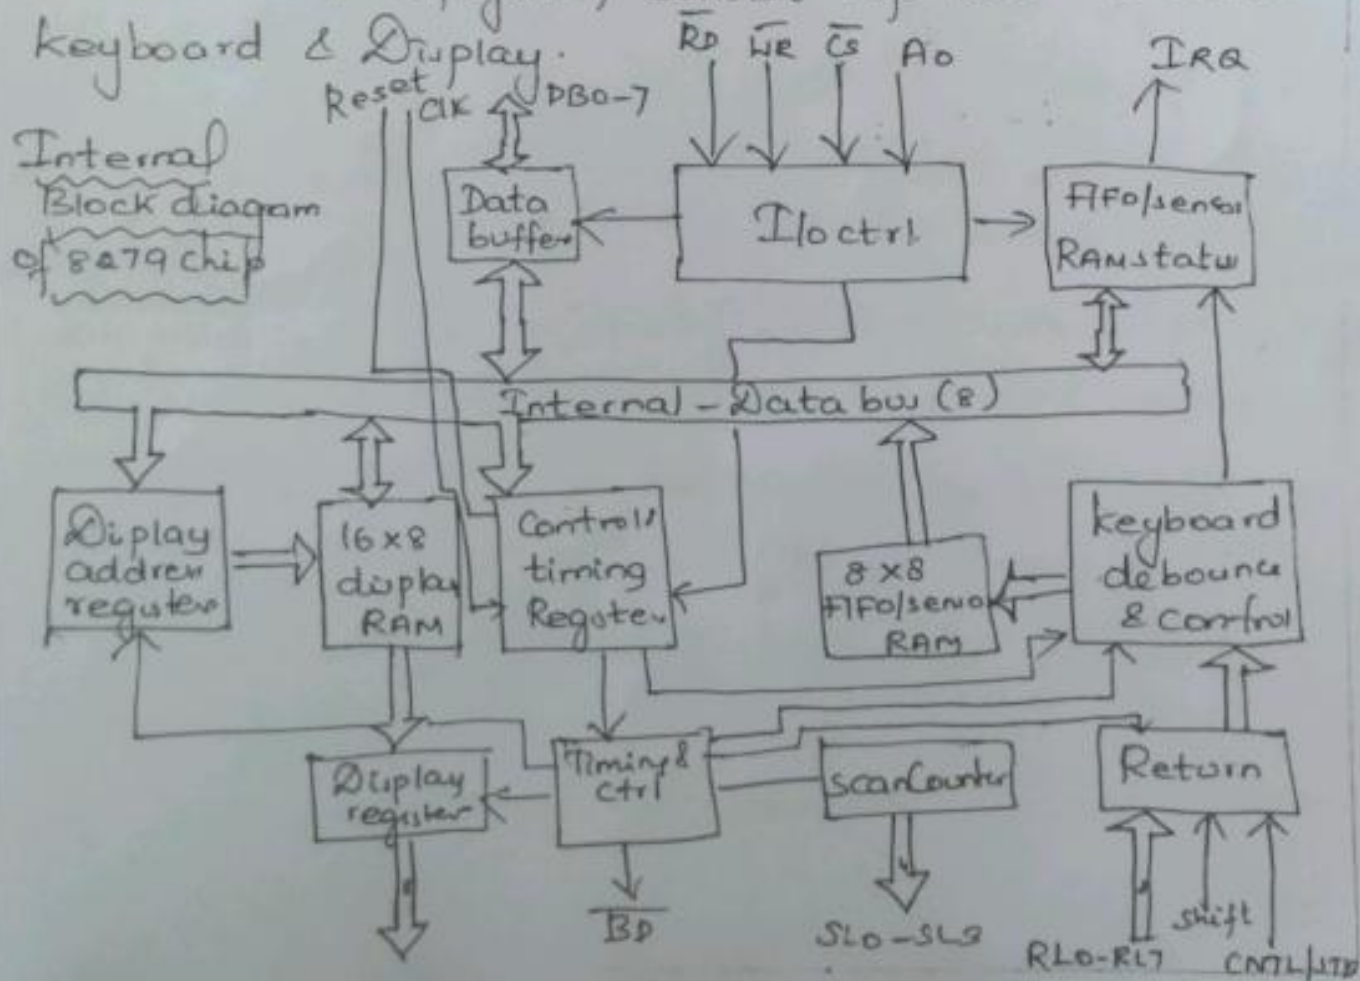 keyboard & Display.
Reset
CLK
DB0-7
RD
WR
CS
A0
IRQ
Internal
Block diagram
of 8279 chip
Data
buffer
I/o ctrl
FIFO/sensor
RAM status
Internal - Data bus (8)
Diplay
addres
register
16 x 8
display
RAM
Control &
timing
Regster
8 x 8
FIFO/senso
RAM
keyboard
debounce
& control
Display
register
Timing &
ctrl
scan Counter
Return
BD
SL0-SL3
RL0-RL7
Shift
CNTL/STB